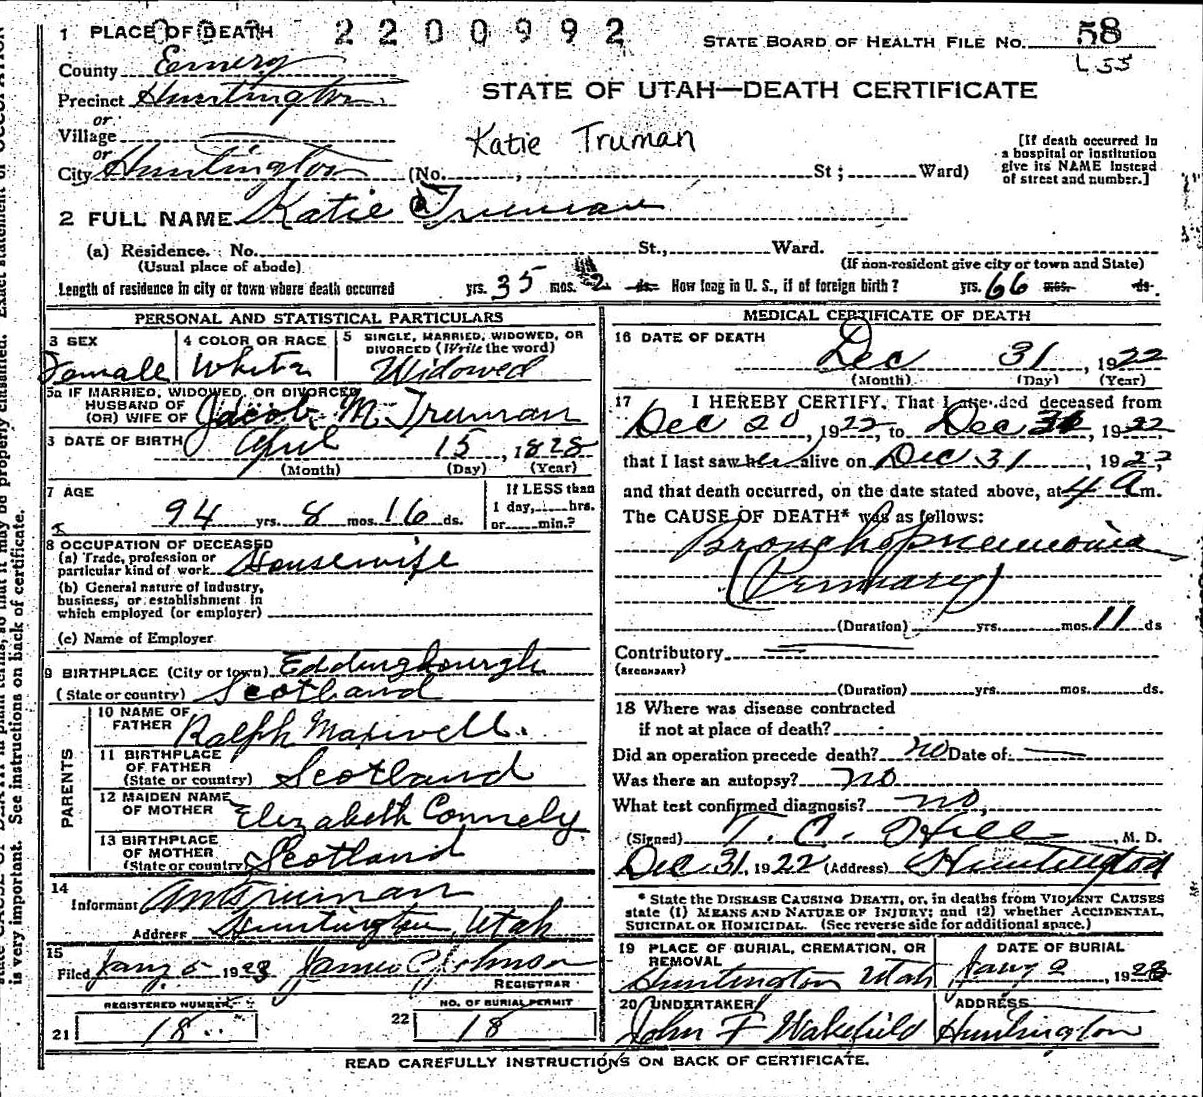 2200992
1 PLACE OF DEATH
STATE BOARD OF HEALTH FILE No. 58
County Emery
L 55
Precinct Huntington
STATE OF UTAH—DEATH CERTIFICATE
or
Village
Katie Truman
or
City Huntington (No. , St; Ward)
[If death occurred in
a hospital or institution
give its NAME instead
of street and number.]
2 FULL NAME Katie Truman
(a) Residence. No. St., Ward.
(Usual place of abode)
(If non-resident give city or town and State)
Length of residence in city or town where death occurred yrs. 35 mos. 2 ds. How long in U. S., if of foreign birth? yrs. 66 mos. ds.
PERSONAL AND STATISTICAL PARTICULARS
3 SEX
Female
4 COLOR OR RACE
White
5 SINGLE, MARRIED, WIDOWED, OR
DIVORCED (Write the word)
Widowed
5a IF MARRIED, WIDOWED, OR DIVORCED
HUSBAND OF
(OR) WIFE OF Jacob M. Truman
6 DATE OF BIRTH April 15, 1828
(Month) (Day) (Year)
7 AGE
94 yrs. 8 mos. 16 ds.
If LESS than
1 day, hrs.
or min.?
8 OCCUPATION OF DECEASED
(a) Trade, profession or
particular kind of work Housewife
(b) General nature of industry,
business, or establishment in
which employed (or employer)
(c) Name of Employer
9 BIRTHPLACE (City or town) Eddingbourgh
(State or country) Scotland
PARENTS
10 NAME OF
FATHER Ralph Maxwell.
11 BIRTHPLACE
OF FATHER
(State or country) Scotland
12 MAIDEN NAME
OF MOTHER Elizabeth Connely
13 BIRTHPLACE
OF MOTHER
(State or country) Scotland
14
Informant AM Truman
Address Huntington, Utah
15
Filed Jany 5 1923 James C Johnson
REGISTRAR
REGISTERED NUMBER
21 18
NO. OF BURIAL PERMIT
22 18
MEDICAL CERTIFICATE OF DEATH
16 DATE OF DEATH
Dec 31, 1922
(Month) (Day) (Year)
17 I HEREBY CERTIFY, That I attended deceased from
Dec 20, 1922, to Dec 31, 1922
that I last saw her alive on Dec 31, 1922,
and that death occurred, on the date stated above, at 4 A m.
The CAUSE OF DEATH* was as follows:
Bronchopneumonia
(Primary)
(Duration) yrs. mos. 11 ds
Contributory
(SECONDARY)
(Duration) yrs. mos. ds.
18 Where was disease contracted
if not at place of death?
Did an operation precede death? no Date of
Was there an autopsy? no
What test confirmed diagnosis? no
(Signed) T. C. Hill, M. D.
Dec 31, 1922 (Address) Huntington
* State the DISEASE CAUSING DEATH, or, in deaths from VIOLENT CAUSES
state (1) MEANS AND NATURE OF INJURY; and (2) whether ACCIDENTAL,
SUICIDAL OR HOMICIDAL. (See reverse side for additional space.)
19 PLACE OF BURIAL, CREMATION, OR
REMOVAL
Huntington Utah
DATE OF BURIAL
Jany 2, 1923
20 UNDERTAKER
John F Wakefield
ADDRESS
Huntington
READ CAREFULLY INSTRUCTIONS ON BACK OF CERTIFICATE.
is very important. See instructions on back of certificate.